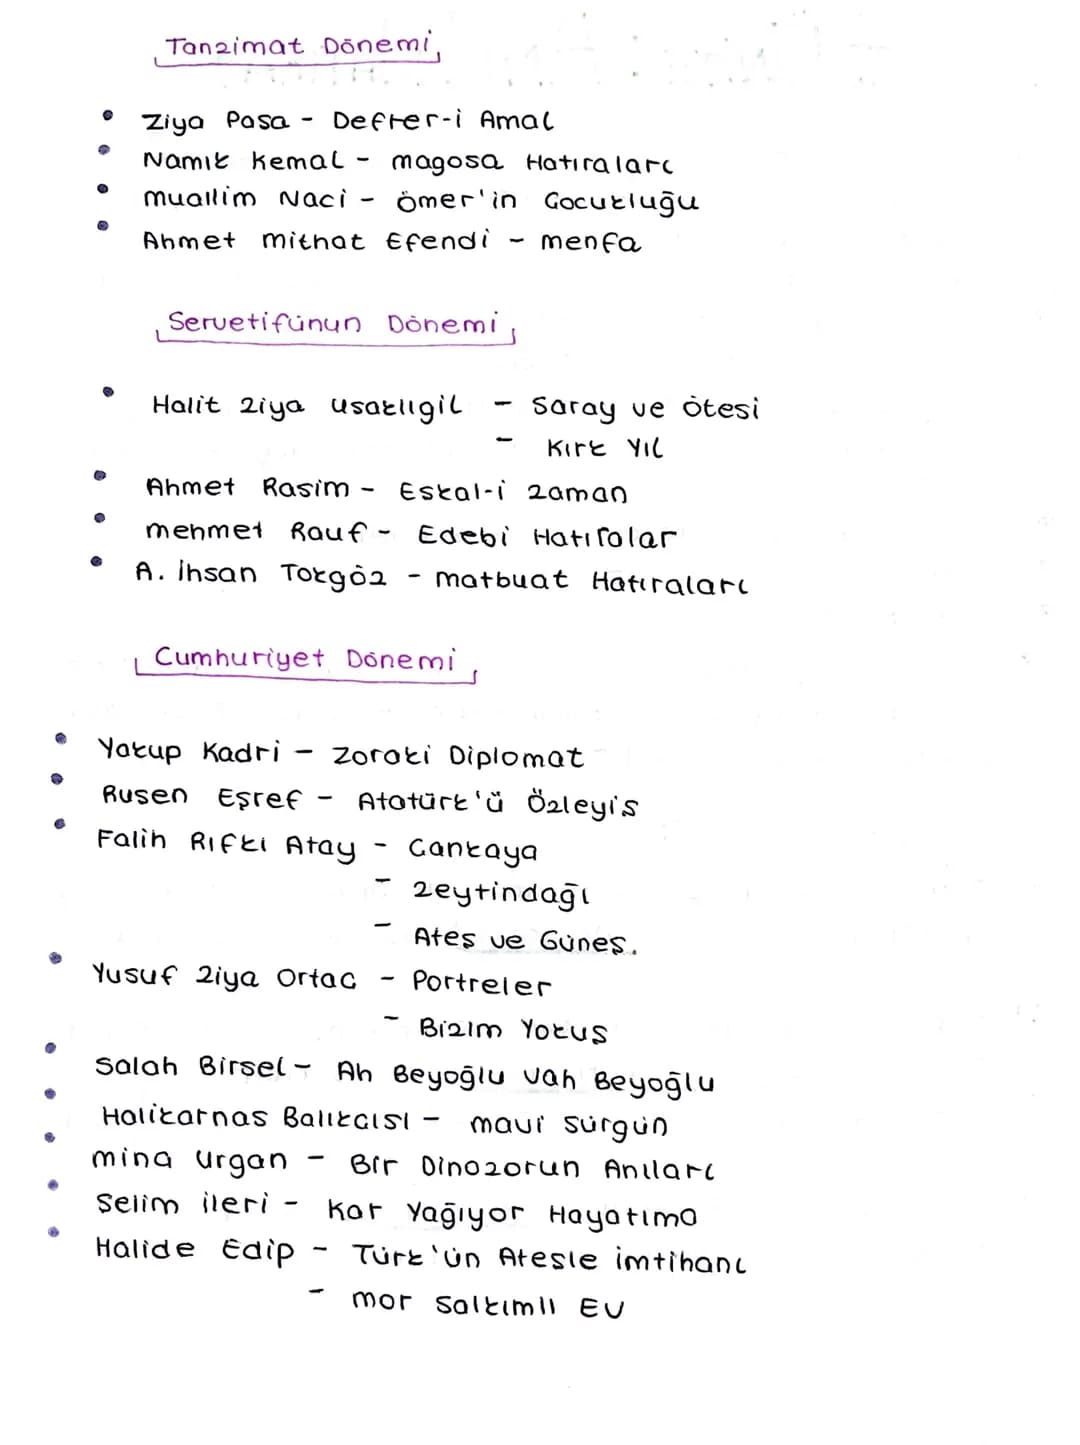 Tanzimat Dönemi
• Ziya Pasa - Defter-i Amal
• Namık Kemal - magosa Hatıraları
• muallim Naci - ömer'in Çocukluğu
• Ahmet mithat Efendi - menfa
Servetifünun Dönemi
• Halit Ziya Usaklıgil - Saray ve ötesi
- Kırk Yıl
• Ahmet Rasim - Eskal-i zaman
• mehmet Rauf - Edebi Hatıralar
• A. İhsan Tokgöz - matbuat Hatıraları
Cumhuriyet Dönemi
• Yakup Kadri - Zoraki Diplomat
• Rusen Eşref - Atatürk'ü Özleyis
• Falih Rıfkı Atay - Çankaya
- Zeytindağı
- Ateş ve Güneş.
• Yusuf Ziya Ortaç - Portreler
- Bizim Yokuş
• Salah Birsel - Ah Beyoğlu Vah Beyoğlu
• Halikarnas Balıkçısı - mavi Sürgün
• mina Urgan - Bir Dinozorun Anıları
• Selim ileri - Kar Yağıyor Hayatıma
• Halide Edip - Türk'ün Atesle imtihanı
- mor Salkımlı Ev